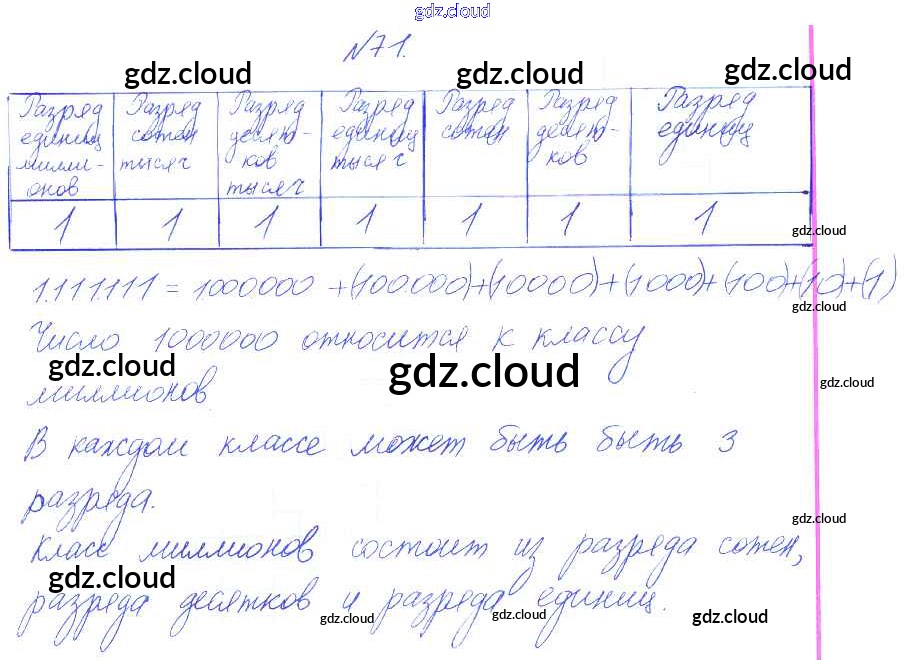 gdz.cloud
№71.
gdz.cloud gdz.cloud gdz.cloud
Разряд единиц миллионов
Разряд сотен тысяч
Разряд десятков тысяч
Разряд единиц тысяч
Разряд сотен
Разряд десятков
Разряд единиц
1 1 1 1 1 1 1
gdz.cloud
1.111.111 = 1000000 +(100000)+(10000)+(1000)+(100)+(10)+(1)
gdz.cloud
Число 1000000 относится к классу
gdz.cloud gdz.cloud gdz.cloud
миллионов
В каждом классе может быть быть 3
разряда.
gdz.cloud
Класс миллионов состоит из разряда сотен,
gdz.cloud
разряда десятков и разряда единиц.
gdz.cloud gdz.cloud gdz.cloud